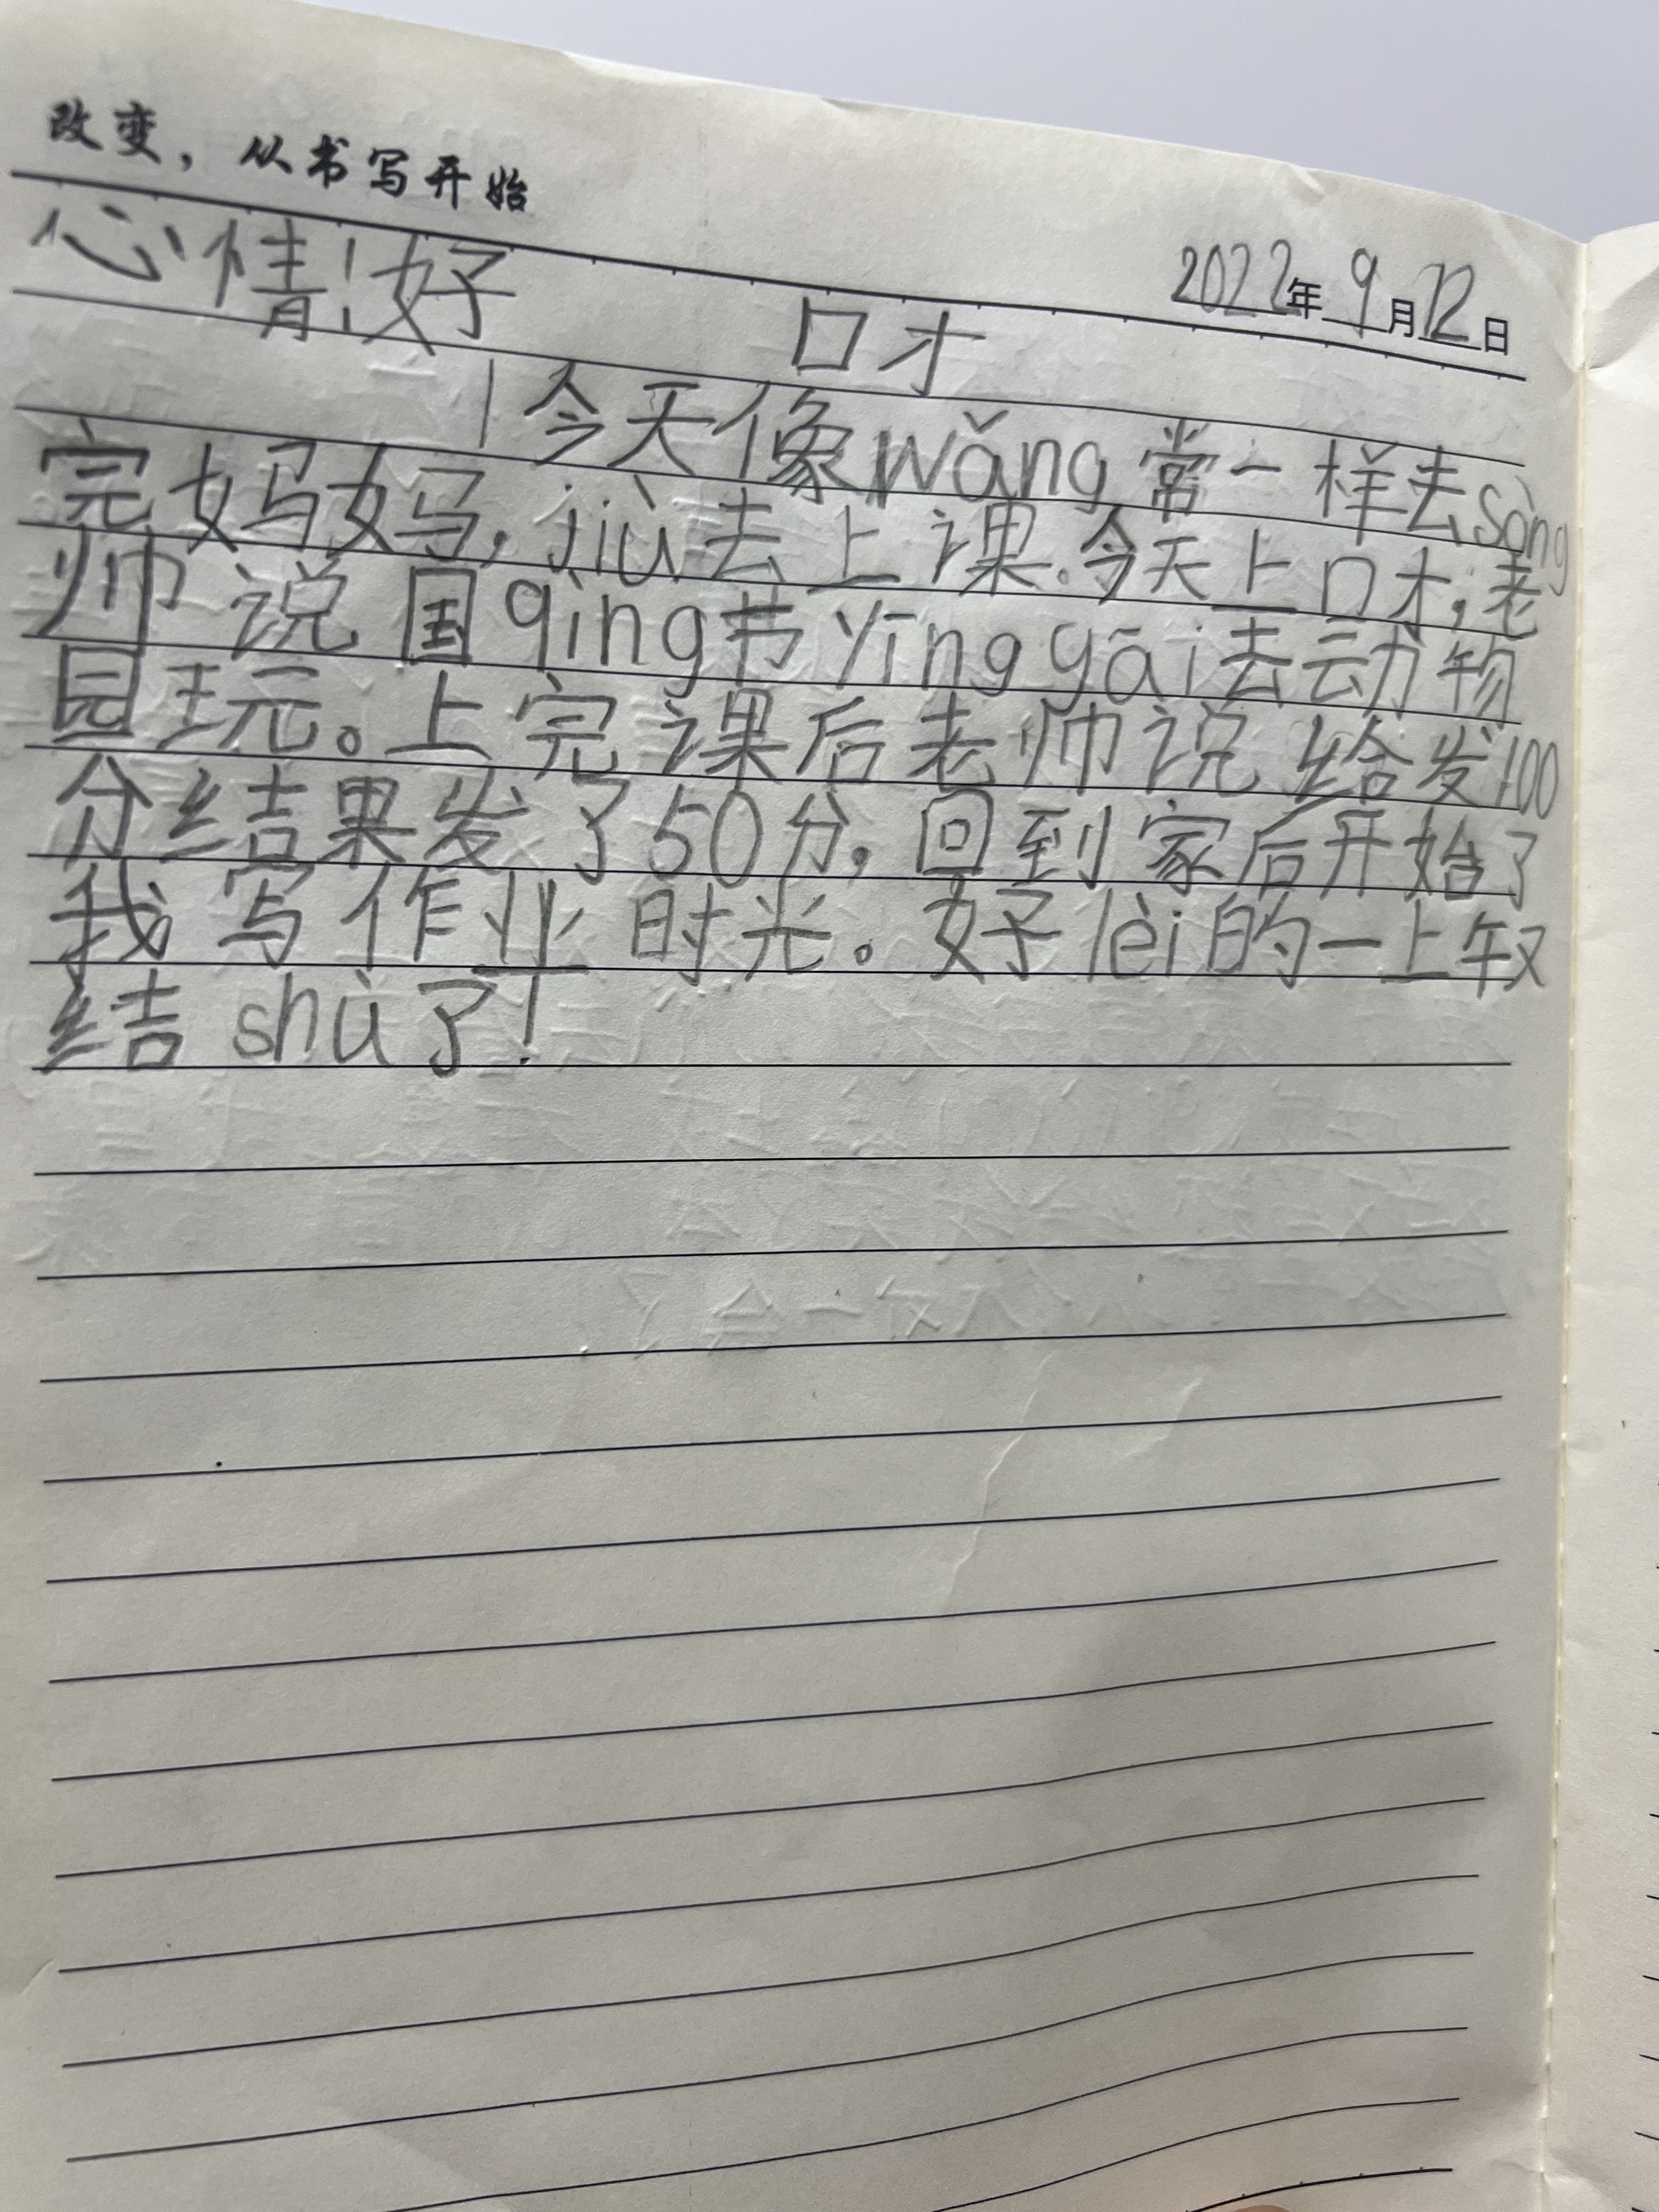 改变，从书写开始
2022年9月12日
心情：好
口才
今天像wǎng常一样去sòng
完妈妈，jiù去上课。今天上口才，老
师说国qìng节yīnggāi去动物
园玩。上完课后老师说给发100
分结果发了50分，回到家后开始了
我写作业时光。好lèi的一上午又
结shù了！